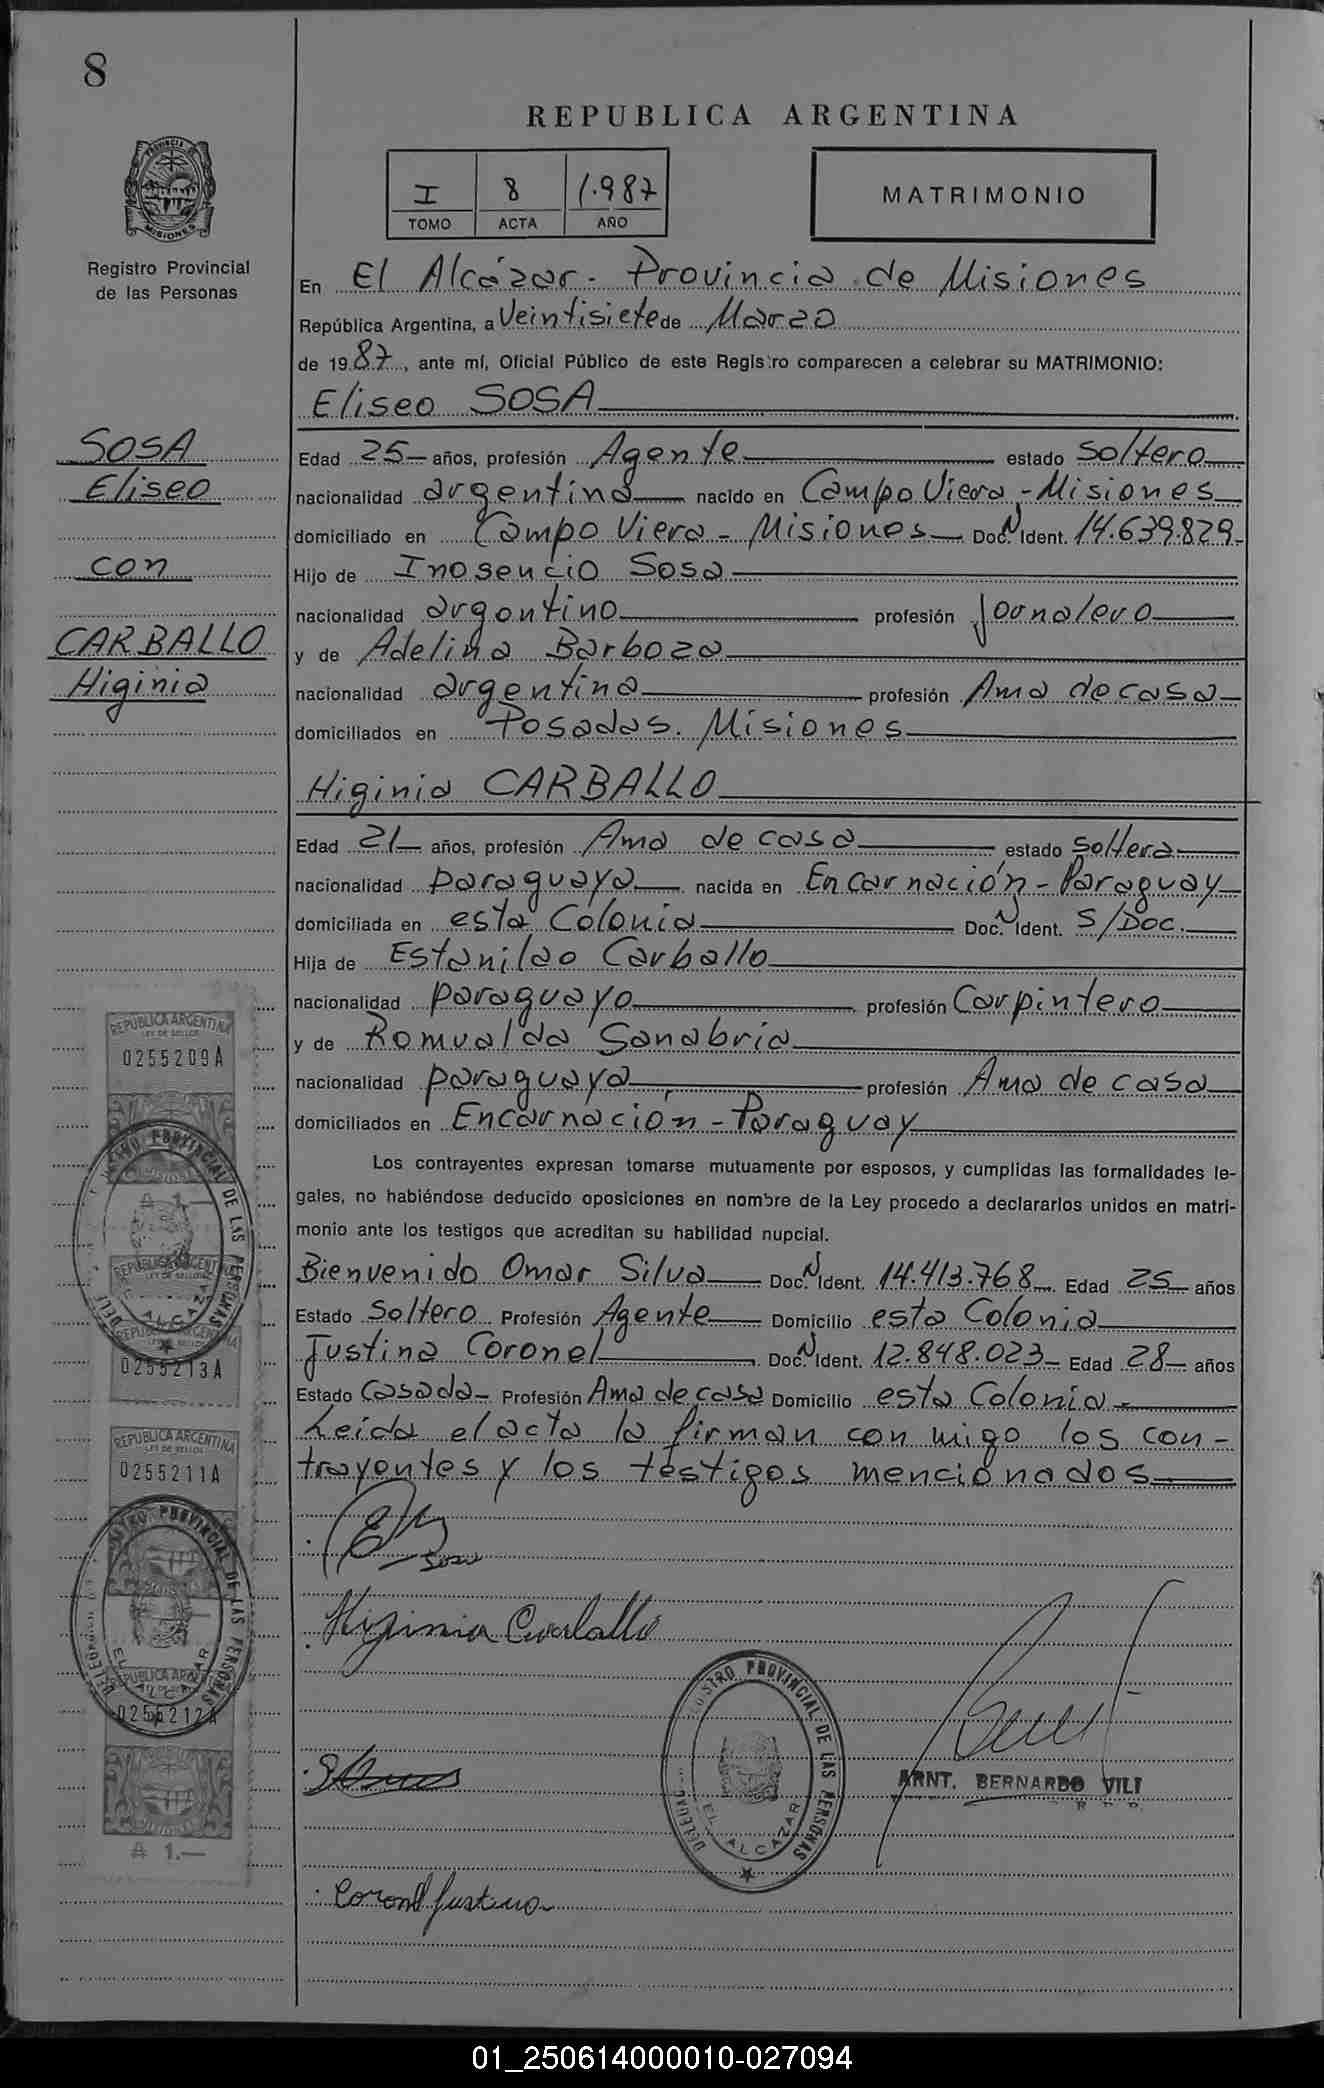 8
REPUBLICA ARGENTINA
I 8 1.987
TOMO ACTA AÑO
MATRIMONIO
PROVINCIA DE
MISIONES
Registro Provincial
de las Personas
En El Alcázar - Provincia de Misiones
República Argentina, a Veintisiete de Marzo
de 1987, ante mí, Oficial Público de este Registro comparecen a celebrar su MATRIMONIO:
Eliseo SOSA
SOSA
Eliseo
con
CARBALLO
Higinia
Edad 25 años, profesión Agente estado soltero
nacionalidad argentina nacido en Campo Viera - Misiones
domiciliado en Campo Viera - Misiones Doc. N Ident. 14.639.829
Hijo de Inosencio Sosa
nacionalidad argentino profesión Jornalero
y de Adelina Barboza
nacionalidad argentina profesión Ama de casa
domiciliados en Posadas. Misiones
Higinia CARBALLO
Edad 21 años, profesión Ama de casa estado soltera
nacionalidad paraguaya nacida en Encarnación - Paraguay
domiciliada en esta Colonia Doc. N Ident. S/Doc.
Hija de Estanilao Carballo
nacionalidad paraguayo profesión Carpintero
y de Romualda Sanabria
nacionalidad paraguaya profesión Ama de casa
domiciliados en Encarnación - Paraguay
Los contrayentes expresan tomarse mutuamente por esposos, y cumplidas las formalidades le-
gales, no habiéndose deducido oposiciones en nombre de la Ley procedo a declararlos unidos en matri-
monio ante los testigos que acreditan su habilidad nupcial.
Bienvenido Omar Silva Doc. N Ident. 14.413.768 Edad 25 años
Estado soltero Profesión Agente Domicilio esta Colonia
Justina Coronel Doc. N Ident. 12.848.023 Edad 28 años
Estado Casada Profesión Ama de casa Domicilio esta Colonia
Leída el acta la firman con migo los con-
trayentes y los testigos mencionados
REPUBLICA ARGENTINA
LEY DE SELLOS
0255209A
A 1.—
REPUBLICA ARGENTINA
LEY DE SELLOS
REPUBLICA ARGENTINA
0255213A
REPUBLICA ARGENTINA
LEY DE SELLOS
0255211A
REPUBLICA ARGENTINA
0255212A
MISIONES
A 1.—
REGISTRO PROVINCIAL DE LAS PERSONAS
EL ALCAZAR
REGISTRO PROVINCIAL DE LAS PERSONAS
DELEGACION
EL ALCAZAR
Sosa
Higinia Carballo
REGISTRO PROVINCIAL DE LAS PERSONAS
EL ALCAZAR
ARNT. BERNARDO VILI
Coronel Justina
01_250614000010-027094